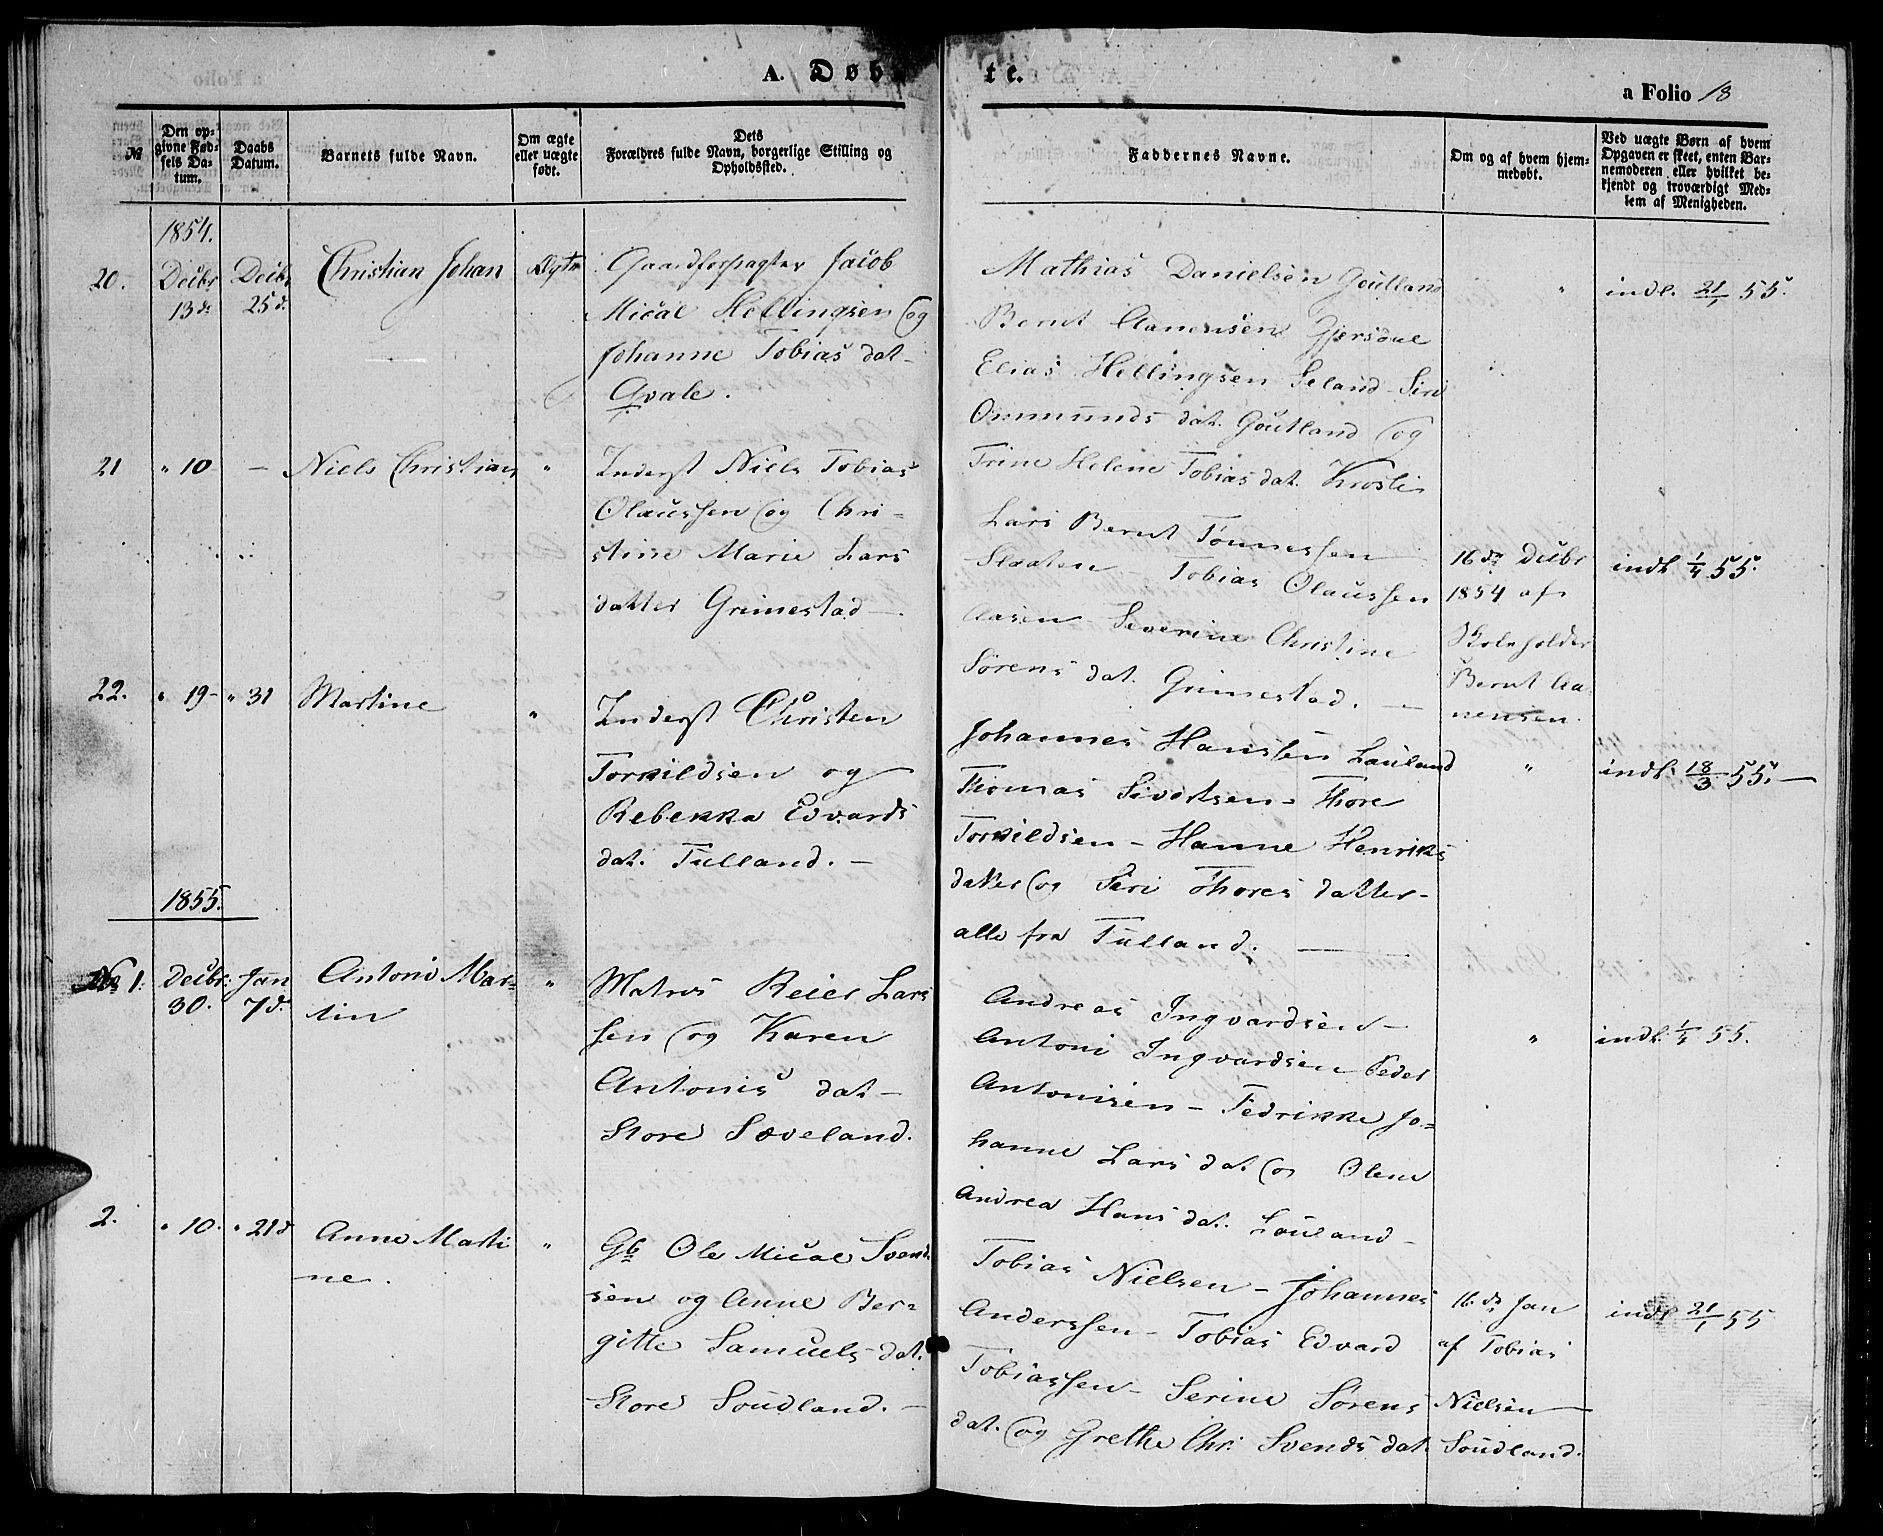 A. Døbte.
a Folio 18
№
Den op-
givne Fød-
sels Da-
tum.
Daabs
Datum.
Barnets fulde Navn.
Om ægte
eller uægte
født.
Dets
Forældres fulde Navn, borgerlige Stilling og
Opholdssted.
Faddernes Navne.
Om og af hvem hjem-
medøbt.
Ved uægte Børn af hvem
Opgaven er skeet, enten Bar-
nemoderen eller hvilket be-
kjendt og troværdigt Med-
lem af Menigheden.
1854.
20.
Decbr
13de
Decbr
25d.
Christian Johan
Ægte
Gaardforpagter Jacob
Mical Hellingsen og
Johanne Tobias dat-
Qvale.
Mathias Danielsen Goutland
Bernt Aanensen Gjersdal
Elias Hellingsen Seland - Siri
Ommunds dat. Goutland og
Trine Helene Tobias dat. Krosli
"
indl. 21/1 55.
21
" 10
-
Niels Christian
"
Inderst Niels Tobias
Olaussen og Chri-
stine Marie Lars
datter Grimestad -
Lars Bernt Tønnessen
Slaaten - Tobias Olaussen
Aasen Severine Christine
Sørens dat. Grimestad. -
16de Decbr
1854 af
Skoleholder
Bernt Aa-
nensen.
indl 1/4 55.
22.
" 19-
" 31
Martine
"
Inderst Christen
Torkildsen og
Rebekka Edvards
dat. Tulland. -
Johannes Hansen Lauland
Thomas Sivertsen - Thore
Torkildsen - Hanne Henriks
datter og Siri Thores datter-
alle fra Tulland. -
"
indl: 18/3 55. -
1855.
No 1.
Decbr:
30.
Jan
7d.
Antoni Mar-
tin
"
Matros Reier Lars
sen og Karen
Antonis dat -
Store Sæveland.
Andreas Ingvardsen -
Antoni Ingvardsen Peder
Antonisen - Fedrikke Jo-
hanne Lars dat og Olene
Andrea Hans dat. Louland -
"
indl. 1/4 55.
2.
" 10.
" 21d
Anne Marti
ne.
"
Gb Ole Mical Svend-
sen og Anne Ber-
gitte Samuels dat.
Store Soudland. -
Tobias Nielsen - Johannes
Anderssen - Tobias Edvard
Tobiassen - Serine Sørens
dat. og Grethe Chr: Svends dat.
16. d. Jan
af Tobias
Nielsen
Soudland.
indl 21/1 55